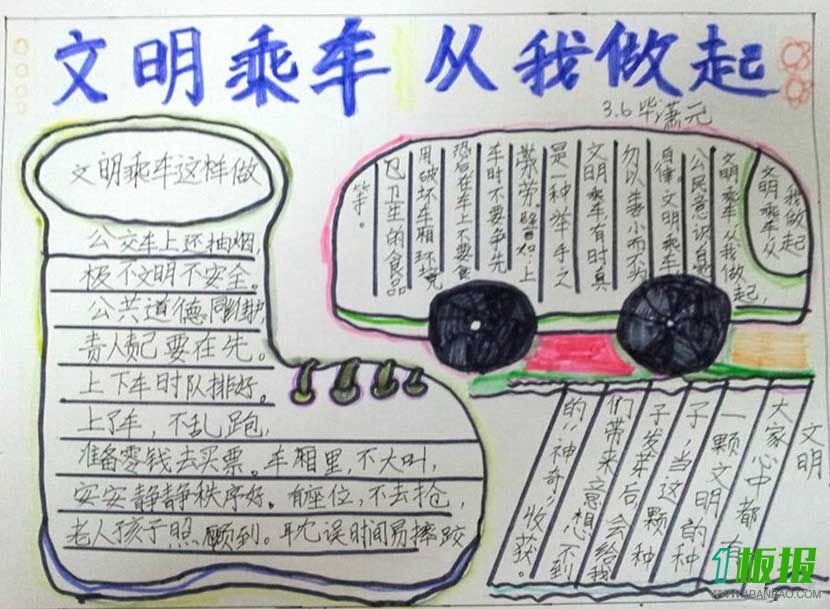 文明乘车 从我做起
3.6 毕潇元
文明乘车这样做
公交车上还抽烟,
极不文明不安全。
公共道德同维护
责人责己要在先。
上下车时队排好。
上了车,不乱跑,
准备零钱去买票。车厢里,不大叫,
安安静静秩序好。有座位,不去抢,
老人孩子照顾到。耽误时间易摔跤
文明乘车从
我做起
文明乘车从我做起,
公民意识自
自律。文明乘车
勿以善小而不为
文明乘车,有时真
是一种举手之
劳。譬如上
车时不要争先
恐后在车上不要食
用破坏车厢环境
卫生的食品
等。
文明
大家心中都有
一颗文明的种
子,当这颗种
子发芽后,会给我
们带来意想不到
的“神奇”收获。
1板报
WWW.1BANBAO.COM